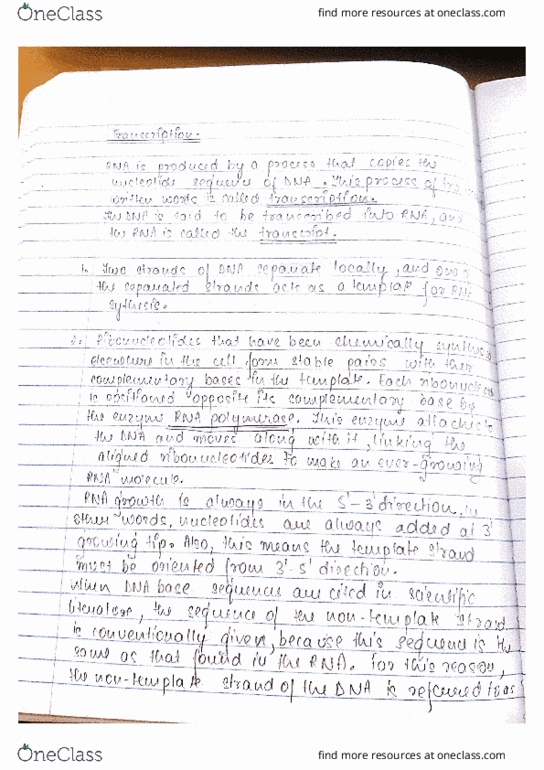 OneClass
find more resources at oneclass.com
Transcription.
RNA is produced by a process that copies the
nucleotide sequence of DNA. This process of
written words is called transcription.
The DNA is said to be transcribed into RNA, and
the RNA is called the transcript.
1. Two strands of DNA separate locally, and one of
the separated strands acts as a template for RNA
sythesis.
2. Ribonucleotides that have been chemically
elsewhere in the cell form stable pairs with their
complementary bases in the template. Each
is positioned opposite its complementary base by
the enzyme RNA polymerase. This enzyme attaches to
the DNA and moves along with it, linking the
aligned ribonucleotides to make an ever-growing
RNA molecule.
RNA growth is always in the 5'-3' direction, in
other words, nucleotides are always added at 3'
growing tip. Also, this means the template strand
must be oriented from 3'-5' direction.
When DNA base sequences are cited in scientific
the sequence of the non-template strand
is conventionally given, because this sequence is the
same as that found in the RNA. For this reason,
the non-template strand of the DNA is referred to as
OneClass
find more resources at oneclass.com